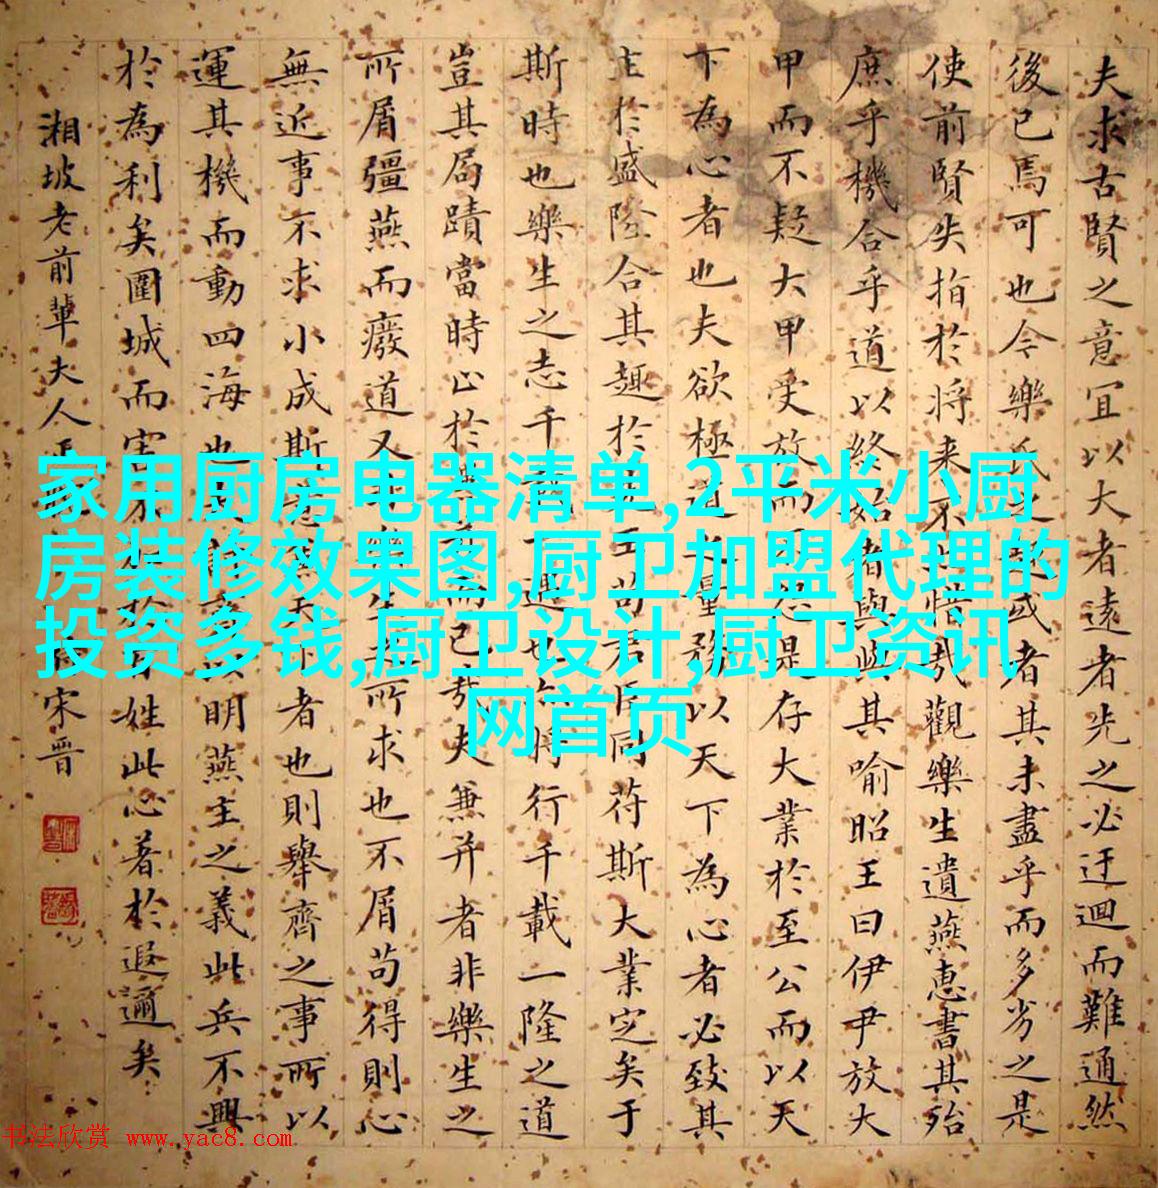 夫求古賢之意宜以大者遠者先之必迂迴而難通然
後已焉可也今樂氏之趣或者其未盡乎而多劣之是
使前賢失指於將来不亦惜哉觀樂生遺燕惠書其殆
庶乎機合乎道以終始者與其喻昭王曰伊尹放大
甲而不疑大甲受放而不怨是存大業於至公而以天
下為心者也夫欲極道之量務以天下為心者必致其
主於盛隆合其趣於先王苟君臣同符斯大業定矣于
斯時也樂生之志千載一遇也亦將行千載一隆之道
豈其局蹟當時止於兼并而已哉夫兼并者非樂生之
所屑彊燕而廢道又非樂生之所求也不屑苟得則心
無近事不求小成斯意兼天下者也則舉齊之事所以
運其機而動四海也夫討齊以明燕主之義此兵不興
於為利矣圍城而害不加於百姓此心著於遐邇矣
湘坡老前輩夫人正 宋晋
家用厨房电器清单,2平米小厨
房装修效果图,厨卫加盟代理的
投资多钱,厨卫设计,厨卫资讯
网首页
书法欣赏 www.yac8.com